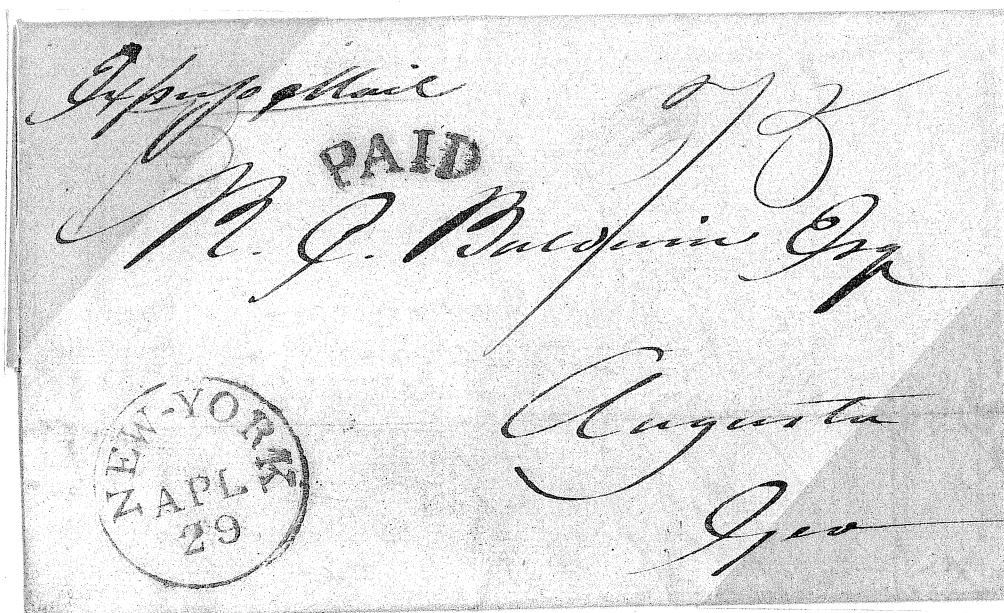 Express Mail
PAID
75
R. J. Baldwin Esq
Augusta
Geo
NEW-YORK
APL
29